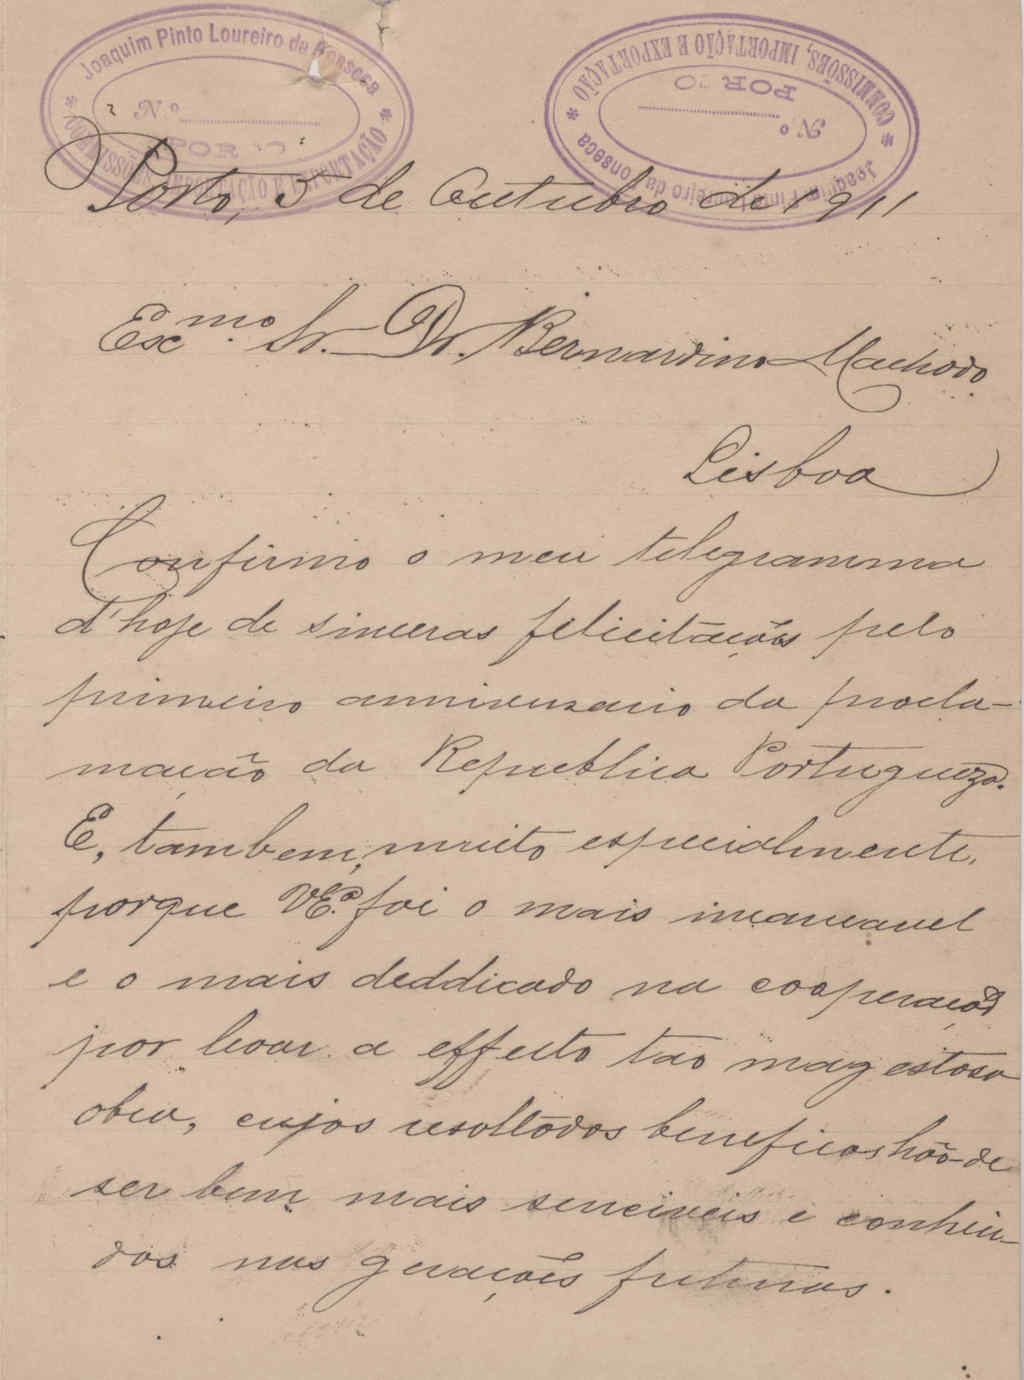 Joaquim Pinto Loureiro da Fonseca
Nº
PORTO
COMMISSÕES, IMPORTAÇÃO E EXPORTAÇÃO
Joaquim Pinto Loureiro da Fonseca
Nº
PORTO
COMMISSÕES, IMPORTAÇÃO E EXPORTAÇÃO
Porto, 5 de Outubro de 1911
Excmo. Sr. Dr. Bernardino Machado
Lisboa
Confirmo o meu telegramma
d'hoje de sinceras felicitações pelo
primeiro anniversario da procla-
mação da Republica Portugueza.
E, tambem, muito especialmente,
porque VEª. foi o mais incansavel
e o mais deddicado na cooperação
por levar a effeito tão magestosa
obra, cujos resoltados beneficos hão-de
ser bem mais senciveis e conheci-
dos nas gerações futuras.